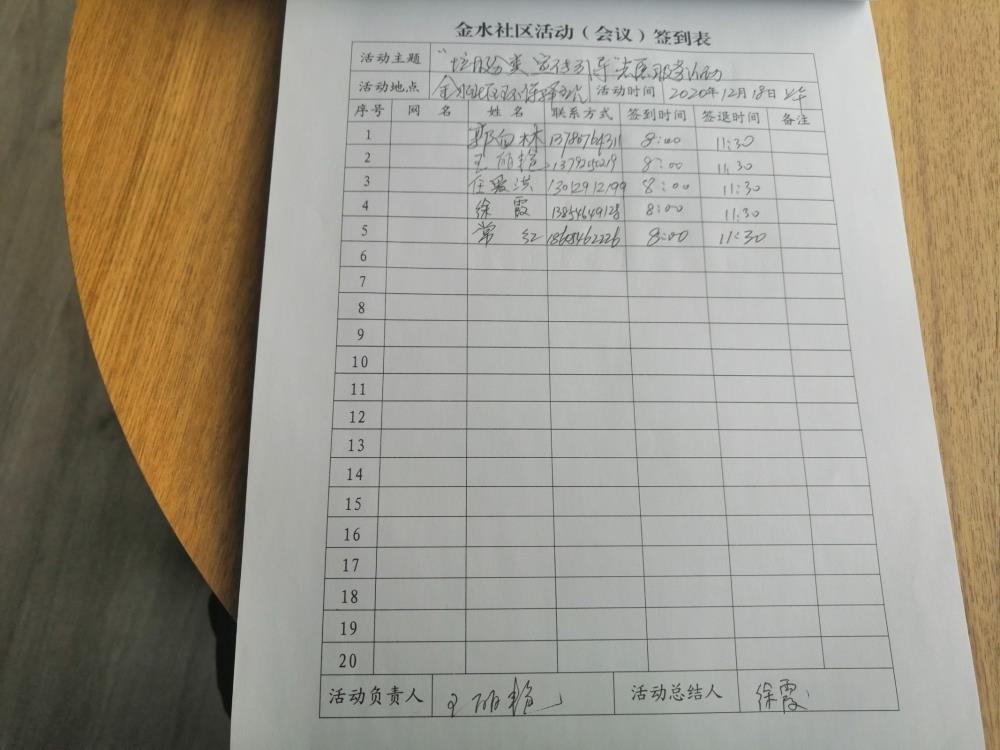 金水社区活动（会议）签到表
活动主题 "垃圾分类 宣传引导"志愿服务活动
活动地点 金水社区环保驿站 活动时间 2020年12月18日
序号 网 名 姓 名 联系方式 签到时间 签退时间 备注
1 郭向林 8:00 11:30
2 王丽艳 8:00 11:30
3 任爱洪 13012912199 8:00 11:30
4 徐霞 13854649128 8:00 11:30
5 常红 8:00 11:30
6
7
8
9
10
11
12
13
14
15
16
17
18
19
20
活动负责人 王丽艳 活动总结人 徐霞